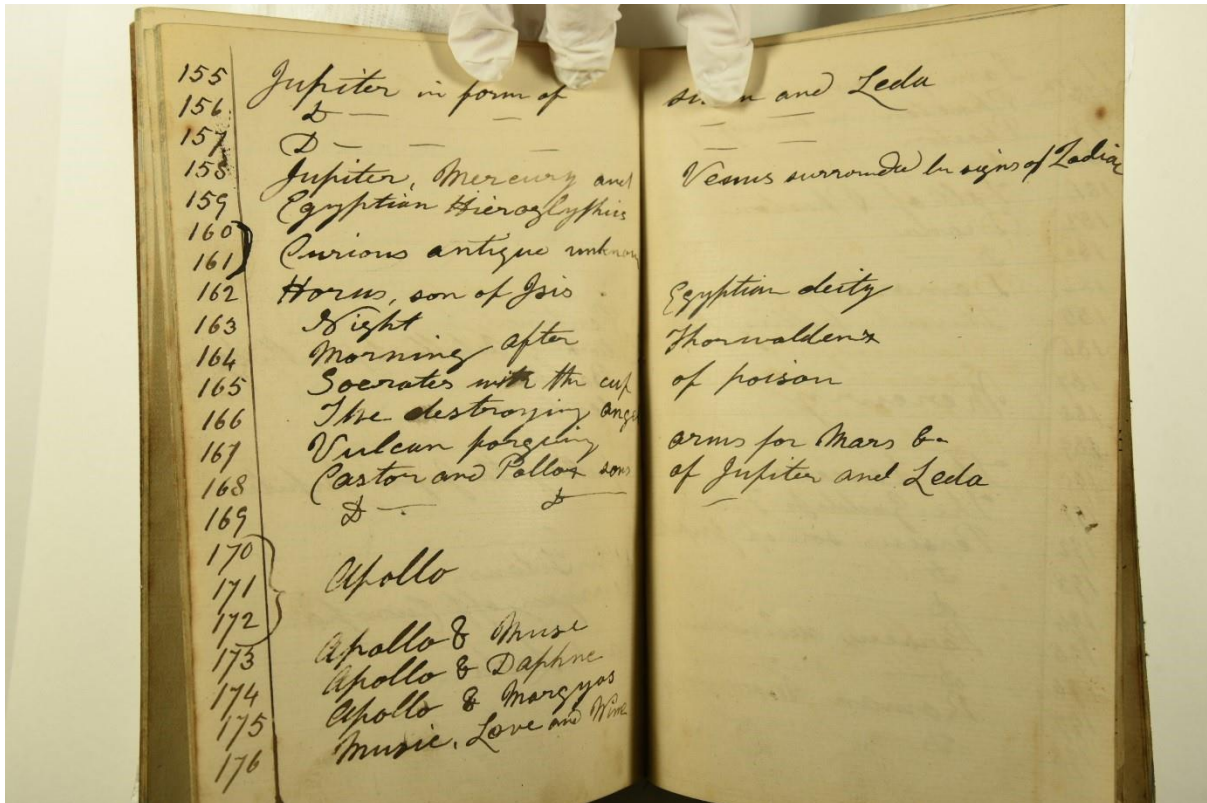 155 Jupiter in form of swan and Leda
156 D — — — —
157 D — — — — —
158 Jupiter, Mercury and Venus surrounded by signs of Zodiac
159 Egyptian Hieroglyphics
160
161 Curious antique unknown
162 Horus, son of Isis. Egyptian deity
163 Night
164 Morning after Thorwalden
165 Socrates with the cup of poison
166 The destroying angel
167 Vulcan forging arms for Mars &
168 Castor and Pollox sons of Jupiter and Leda
169 D — D —
170
171 Apollo
172
173 Apollo & Muse
174 Apollo & Daphne
175 Apollo & Margyas
176 Music, Love and Wine